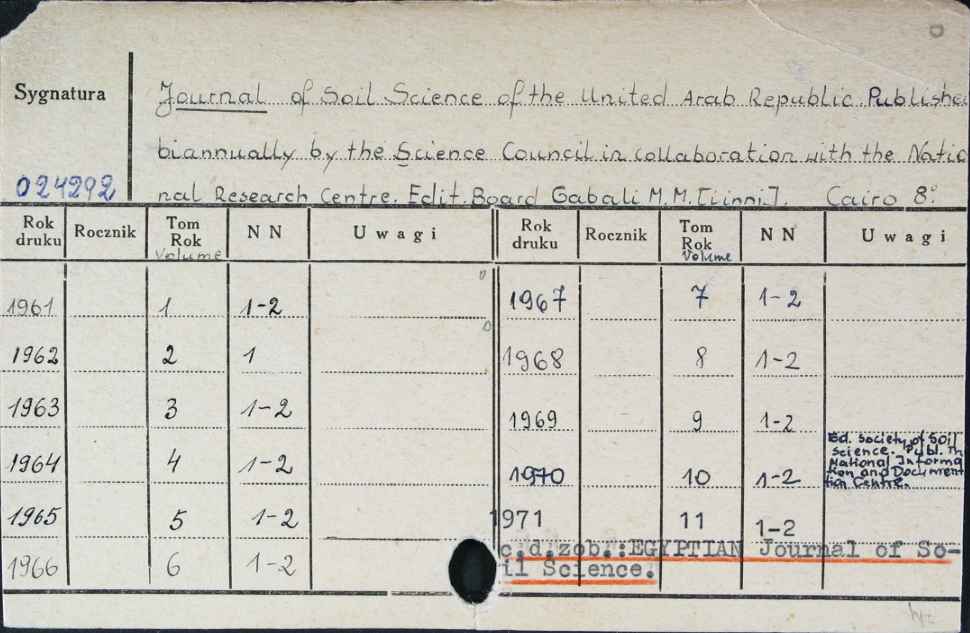 Sygnatura
Journal of Soil Science of the United Arab Republic. Publishe
biannually by the Science Council in collaboration with the Natio
024292 nal Research Centre. Edit. Board Gabali M.M. [i inni]. Cairo 8°
Rok druku Rocznik Tom Rok Volume NN Uwagi Rok druku Rocznik Tom Rok Volume NN Uwagi
1961 1 1-2 1967 7 1-2
1962 2 1 1968 8 1-2
1963 3 1-2 1969 9 1-2
1964 4 1-2 1970 10 1-2 Ed. Society of Soil Science. Publ. Th National Informa tion and Document tion Centre.
1965 5 1-2 1971 11 1-2
1966 6 1-2 c.d.zob.: EGYPTIAN Journal of So-
il Science.